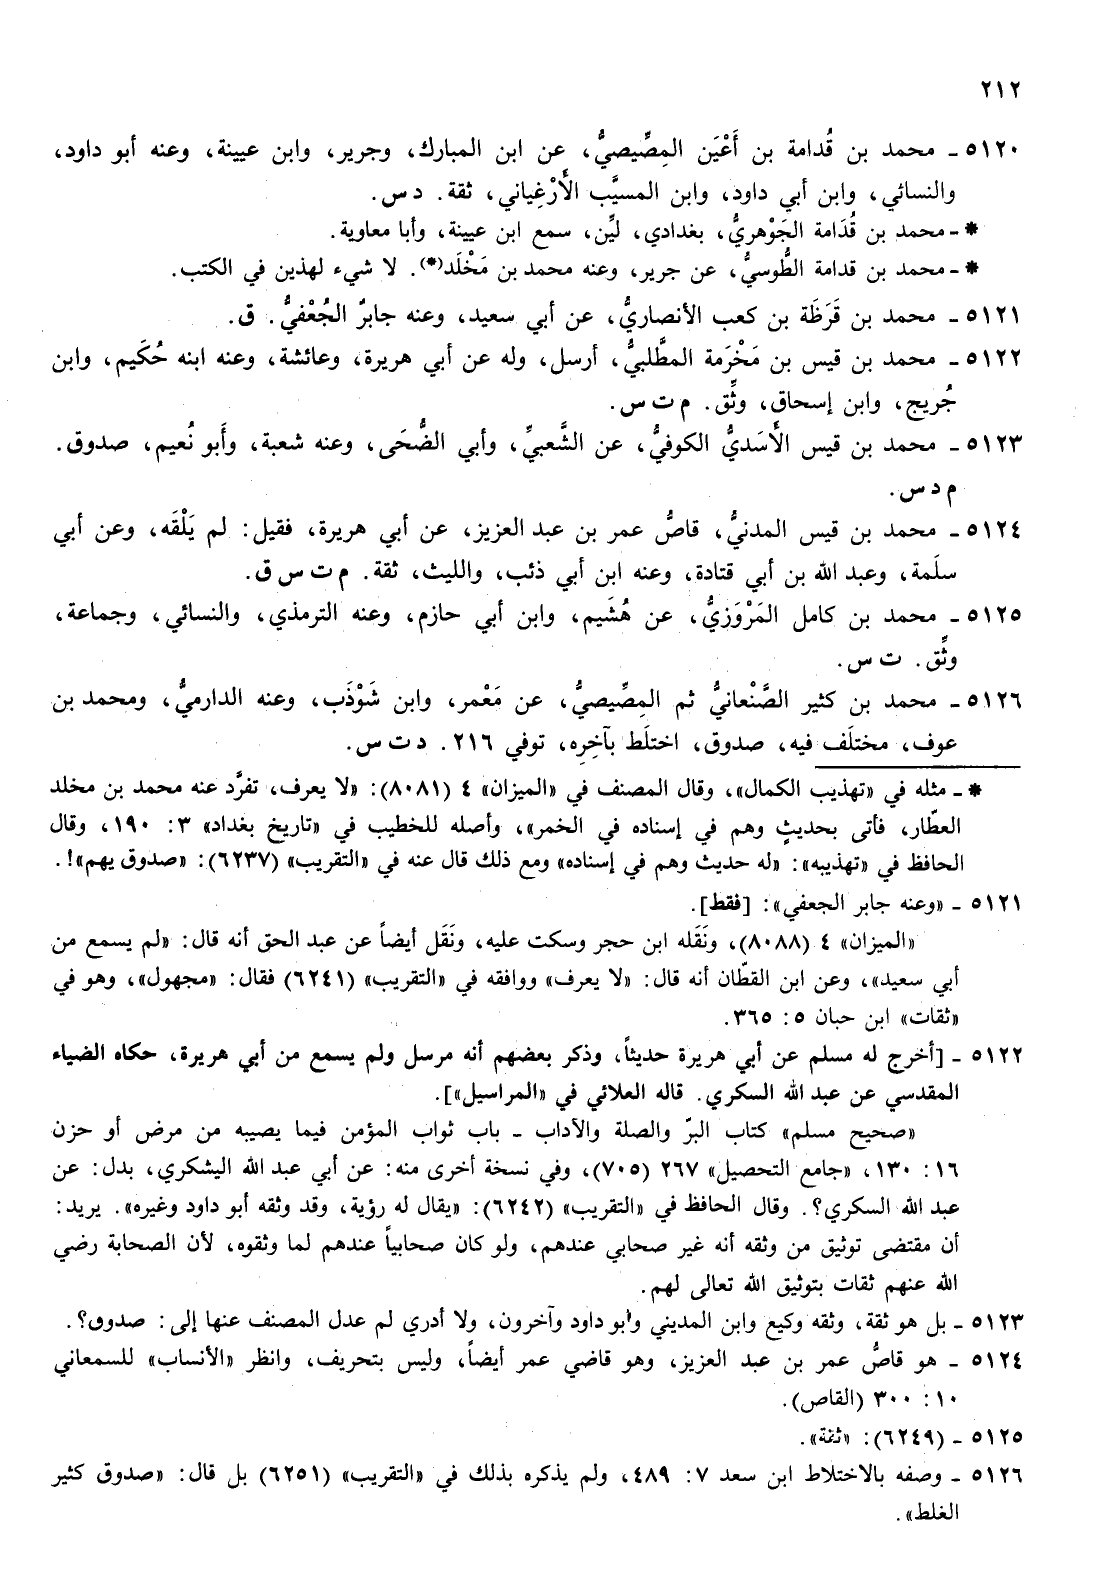 ٢١٢
٥١٢٠ ـ محمد بن قُدامة بن أَعْيَن المِصِّيصيُّ، عن ابن المبارك، وجرير، وابن عيينة، وعنه أبو داود،
والنسائي، وابن أبي داود، وابن المسيَّب الأَرْغِياني، ثقة. د س.
* ـ محمد بن قُدَامة الجَوْهريُّ، بغدادي، ليِّن، سمع ابن عيينة، وأبا معاوية.
* ـ محمد بن قدامة الطُّوسيُّ، عن جرير، وعنه محمد بن مَخْلَد(*). لا شيء لهذين في الكتب.
٥١٢١ ـ محمد بن قَرَظَة بن كعب الأنصاريُّ، عن أبي سعيد، وعنه جابرٌ الجُعْفيُّ. ق.
٥١٢٢ ـ محمد بن قيس بن مَخْرَمة المطَّلبيُّ، أرسل، وله عن أبي هريرة، وعائشة، وعنه ابنه حُكَيم، وابن
جُريج، وابن إسحاق، وثِّق. م ت س.
٥١٢٣ ـ محمد بن قيس الأَسَديُّ الكوفيُّ، عن الشَّعبيِّ، وأبي الضُّحَى، وعنه شعبة، وأَبو نُعيم، صدوق.
م د س.
٥١٢٤ ـ محمد بن قيس المدنيُّ، قاصُّ عمر بن عبد العزيز، عن أبي هريرة، فقيل: لم يَلْقَه، وعن أبي
سلَمة، وعبد الله بن أبي قتادة، وعنه ابن أبي ذئب، والليث، ثقة. م ت س ق.
٥١٢٥ ـ محمد بن كامل المَرْوَزيُّ، عن هُشَيم، وابن أبي حازم، وعنه الترمذي، والنسائي، وجماعة،
وثِّق. ت س.
٥١٢٦ ـ محمد بن كثير الصَّنْعانيُّ ثم المِصِّيصيُّ، عن مَعْمر، وابن شَوْذَب، وعنه الدارميُّ، ومحمد بن
عوف، مختلَف فيه، صدوق، اختلَط بآخِره، توفي ٢١٦. د ت س.
* ـ مثله في «تهذيب الكمال»، وقال المصنف في «الميزان» ٤ (٨٠٨١): «لا يعرف، تفرَّد عنه محمد بن مخلد
العطّار، فأتى بحديثٍ وهم في إسناده في الخمر»، وأصله للخطيب في «تاريخ بغداد» ٣: ١٩٠، وقال
الحافظ في «تهذيبه»: «له حديث وهم في إسناده» ومع ذلك قال عنه في «التقريب» (٦٢٣٧): «صدوق يهم»!.
٥١٢١ ـ «وعنه جابر الجعفي»: [فقط].
«الميزان» ٤ (٨٠٨٨)، ونَقَله ابن حجر وسكت عليه، ونَقَل أيضاً عن عبد الحق أنه قال: «لم يسمع من
أبي سعيد»، وعن ابن القطّان أنه قال: «لا يعرف» ووافقه في «التقريب» (٦٢٤١) فقال: «مجهول»، وهو في
«ثقات» ابن حبان ٥: ٣٦٥.
٥١٢٢ ـ [أخرج له مسلم عن أبي هريرة حديثاً، وذكر بعضهم أنه مرسل ولم يسمع من أبي هريرة، حكاه الضياء
المقدسي عن عبد الله السكري. قاله العلائي في «المراسيل»].
«صحيح مسلم» كتاب البرّ والصلة والآداب ـ باب ثواب المؤمن فيما يصيبه من مرض أو حزن
١٦: ١٣٠، «جامع التحصيل» ٢٦٧ (٧٠٥)، وفي نسخة أخرى منه: عن أبي عبد الله اليشكري، بدل: عن
عبد الله السكري؟. وقال الحافظ في «التقريب» (٦٢٤٢): «يقال له رؤية، وقد وثقه أبو داود وغيره». يريد:
أن مقتضى توثيق من وثقه أنه غير صحابي عندهم، ولو كان صحابياً عندهم لما وثقوه، لأن الصحابة رضي
الله عنهم ثقات بتوثيق الله تعالى لهم.
٥١٢٣ ـ بل هو ثقة، وثقه وكيع وابن المديني وأبو داود وآخرون، ولا أدري لم عدل المصنف عنها إلى: صدوق؟.
٥١٢٤ ـ هو قاصُّ عمر بن عبد العزيز، وهو قاضي عمر أيضاً، وليس بتحريف، وانظر «الأنساب» للسمعاني
١٠: ٣٠٠ (القاص).
٥١٢٥ ـ (٦٢٤٩): «ثقة».
٥١٢٦ ـ وصفه بالاختلاط ابن سعد ٧: ٤٨٩، ولم يذكره بذلك في «التقريب» (٦٢٥١) بل قال: «صدوق كثير
الغلط».